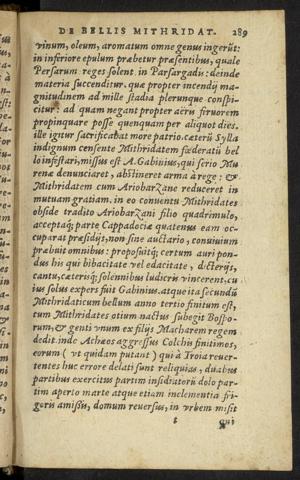 DE BELLIS MITHRIDAT. 289
vinum, oleum, aromatum omne genus ingerũt:
in inferiore epulum præbetur præsentibus, quale
Persarum reges solent in Parsargadis: deinde
materia succenditur. quæ propter incendij ma-
gnitudinem ad mille stadia plerunque conspi-
citur: ad quam negant propter aëris feruorem
propinquare posse quenquam per aliquot dies.
ille igitur sacrificabat more patrio. cæterũ Sylla
indignum censente Mithridatem fœderatũ bel
lo infestari, missus est A. Gabinius, qui serio Mu
renæ denunciaret, abstineret arma à rege: &
Mithridatem cum Ariobarzane reduceret in
mutuam gratiam. in eo conuentu Mithridates
obside tradito Ariobarzani filio quadrimulo,
acceptaq; parte Cappadociæ quatenus eam oc-
cuparat præsidijs, non sine auctario, conuiuium
præbuit omnibus: proposuitq; certum auri pon-
dus his qui bibacitate vel edacitate, dicterijs,
cantu, cæterisq; solennibus ludicris vincerent. cu
ius solus expers fuit Gabinius. atque ita secundũ
Mithridaticum bellum anno tertio finitum est,
tum Mithridates otium nactus subegit Bospo-
rum, & genti vnum ex filijs Macharem regem
dedit. inde Achæos aggressus Colchis finitimos,
eorum ( vt quidam putant ) qui à Troia reuer-
tentes huc errore delati sunt reliquias, duabus
partibus exercitus partim insidiatorũ dolo par-
tim aperto marte atque etiam inclementia fri-
goris amissis, domum reuersus, in vrbem misit
t qui